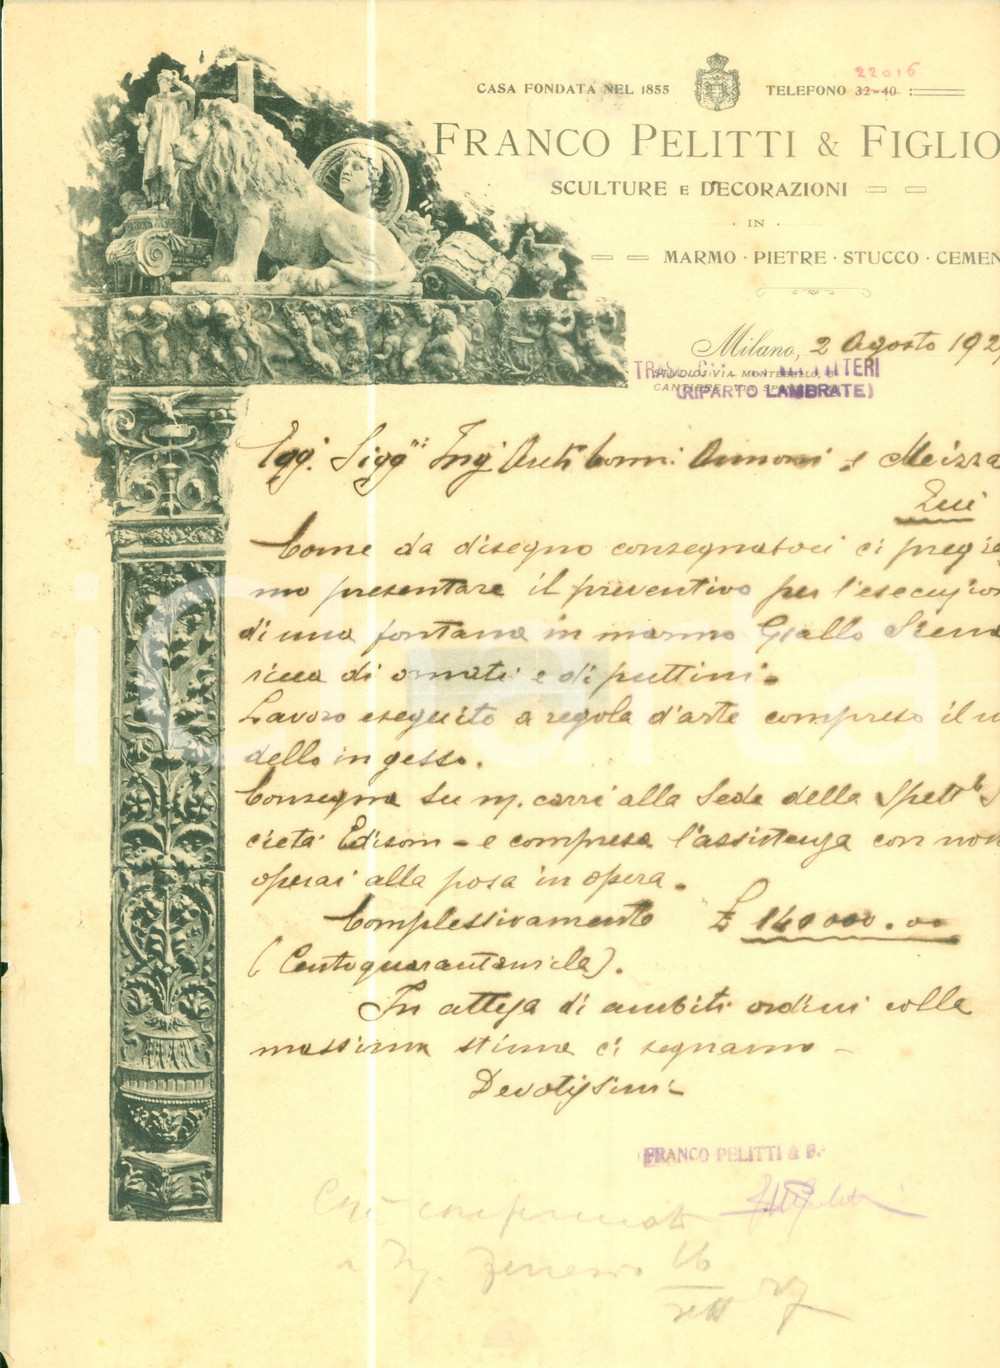 22016
CASA FONDATA NEL 1855
TELEFONO 32-40 :
FRANCO PELITTI & FIGLIO
SCULTURE E DECORAZIONI
IN
MARMO · PIETRE · STUCCO · CEMEN
Milano, 2 Agosto 192
STUDIO: VIA MONTEBELLO, 6
CANTIERE: VIA
(RIPARTO LAMBRATE)
Egg. Sigg.ri Ing. Arch. Comm. Annoni e
Qui
Come da disegno consegnatoci ci pregia
mo presentare il preventivo per l'esecuzion
di una fontana in marmo Giallo Siena
ricca di ornati e di puttini.
Lavoro eseguito a regola d'arte compreso il
dello in gesso.
Consegna su n/. carri alla Sede della Spett.le S
cietà Edison - e compresa l'assistenza con nos
operai alla posa in opera.
Complessivamente £ 140000.00
(Centoquarantamila).
In attesa di ambiti ordini colla
massima stima ci segnamo -
Devotissimi
FRANCO PELITTI & F.
confermato
a Ing. 16
27